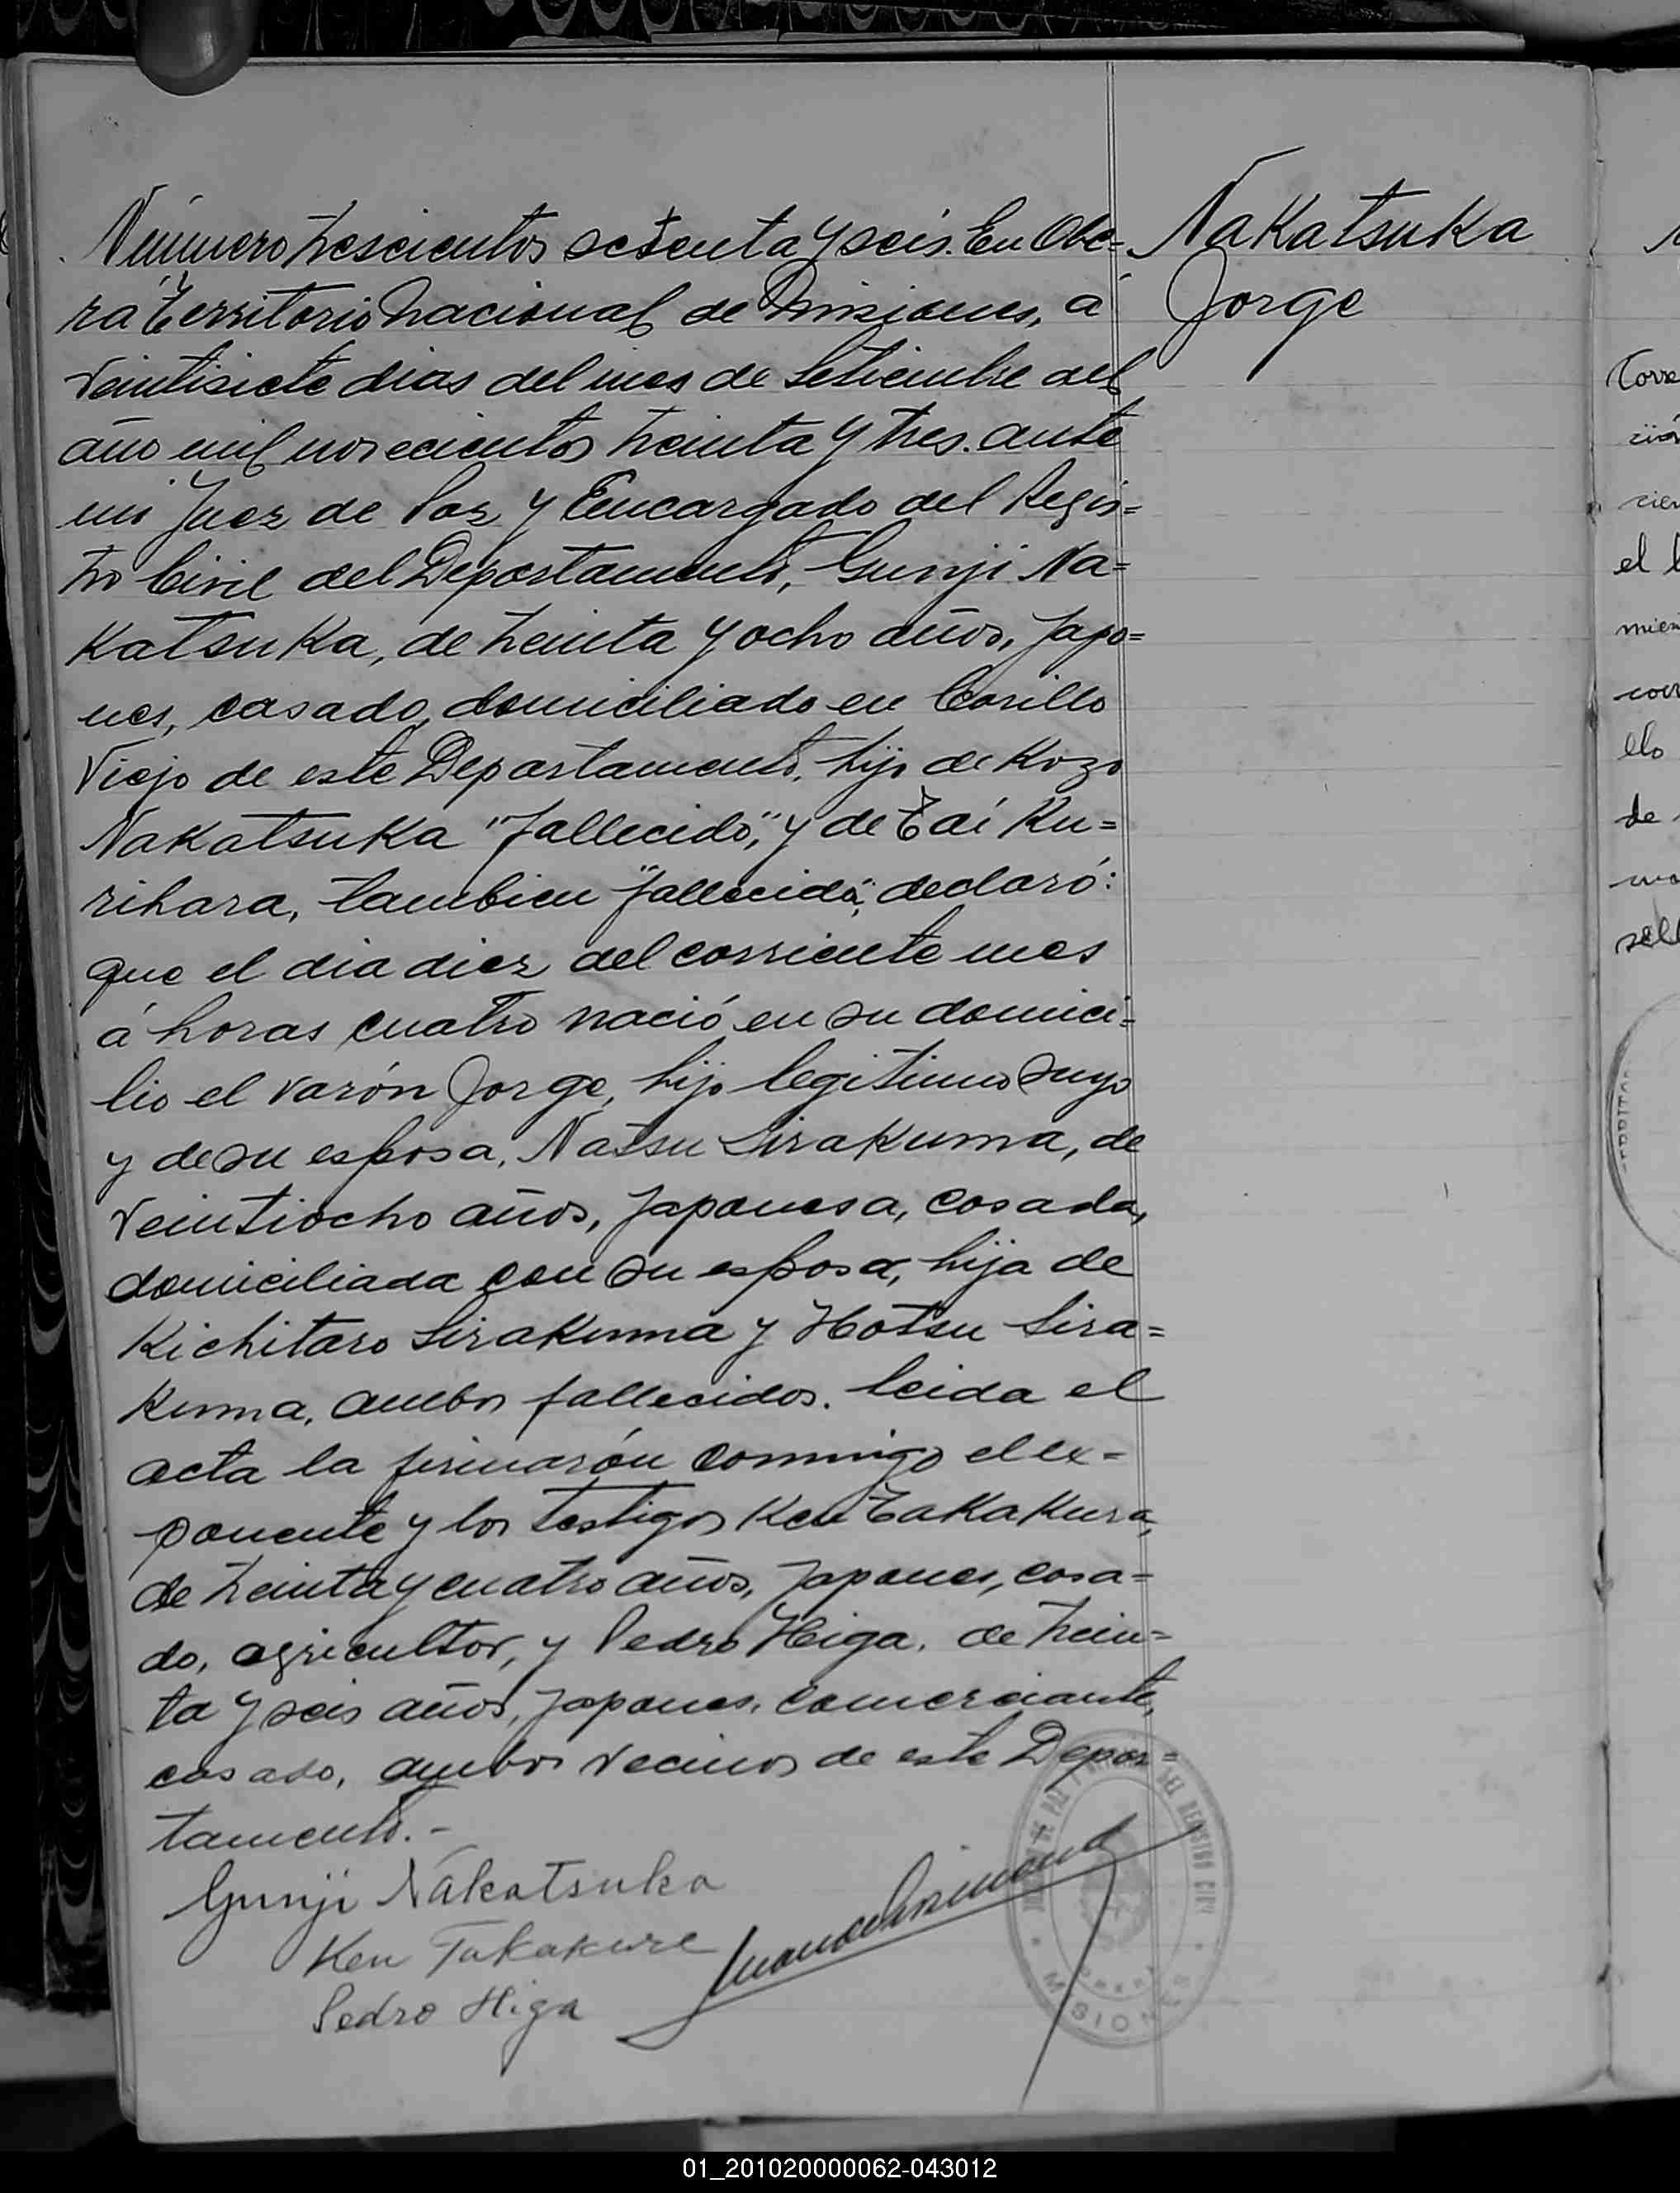 Número trescientos setenta y seis. En Obe=
rá Territorio Nacional de Misiones, á
veintisiete dias del mes de Setiembre del
año mil novecientos treinta y tres. ante
mi Juez de Paz y Encargado del Regis=
tro Civil del Departamento, Gunji Na=
Katsuka, de treinta y ocho años, Japo=
nes, casado, domiciliado en
Viejo de este Departamento, hijo de Kozo
Nakatsuka "fallecido", y de Tai Ku=
rihara, tambien "fallecida", declaró:
que el dia diez del corriente mes
á horas cuatro nació en su domici=
lio el varón Jorge, hijo legitimo suyo
y de su esposa, Natsu Sirakuma, de
veintiocho años, Japonesa, casada,
domiciliada con su esposo, hija de
Kichitaro Sirakuma y Hotsu Sira=
Kuma, ambos fallecidos. Leida el
acta la firmarón conmigo el ex=
ponente y los testigos Ken Takakura,
de treinta y cuatro años, Japones, casa=
do, agricultor, y Pedro Higa, de trein=
ta y seis años, Japones, comerciante,
casado, ambos vecinos de este Depar=
tamento.-
Gunji Nakatsuka
Ken Takakura
Pedro Higa
Nakatsuka
Jorge
DE PAZ DEL REGISTRO CIVIL
MISIONES
Corre
el
mien
ello
de
sell
01_201020000062-043012